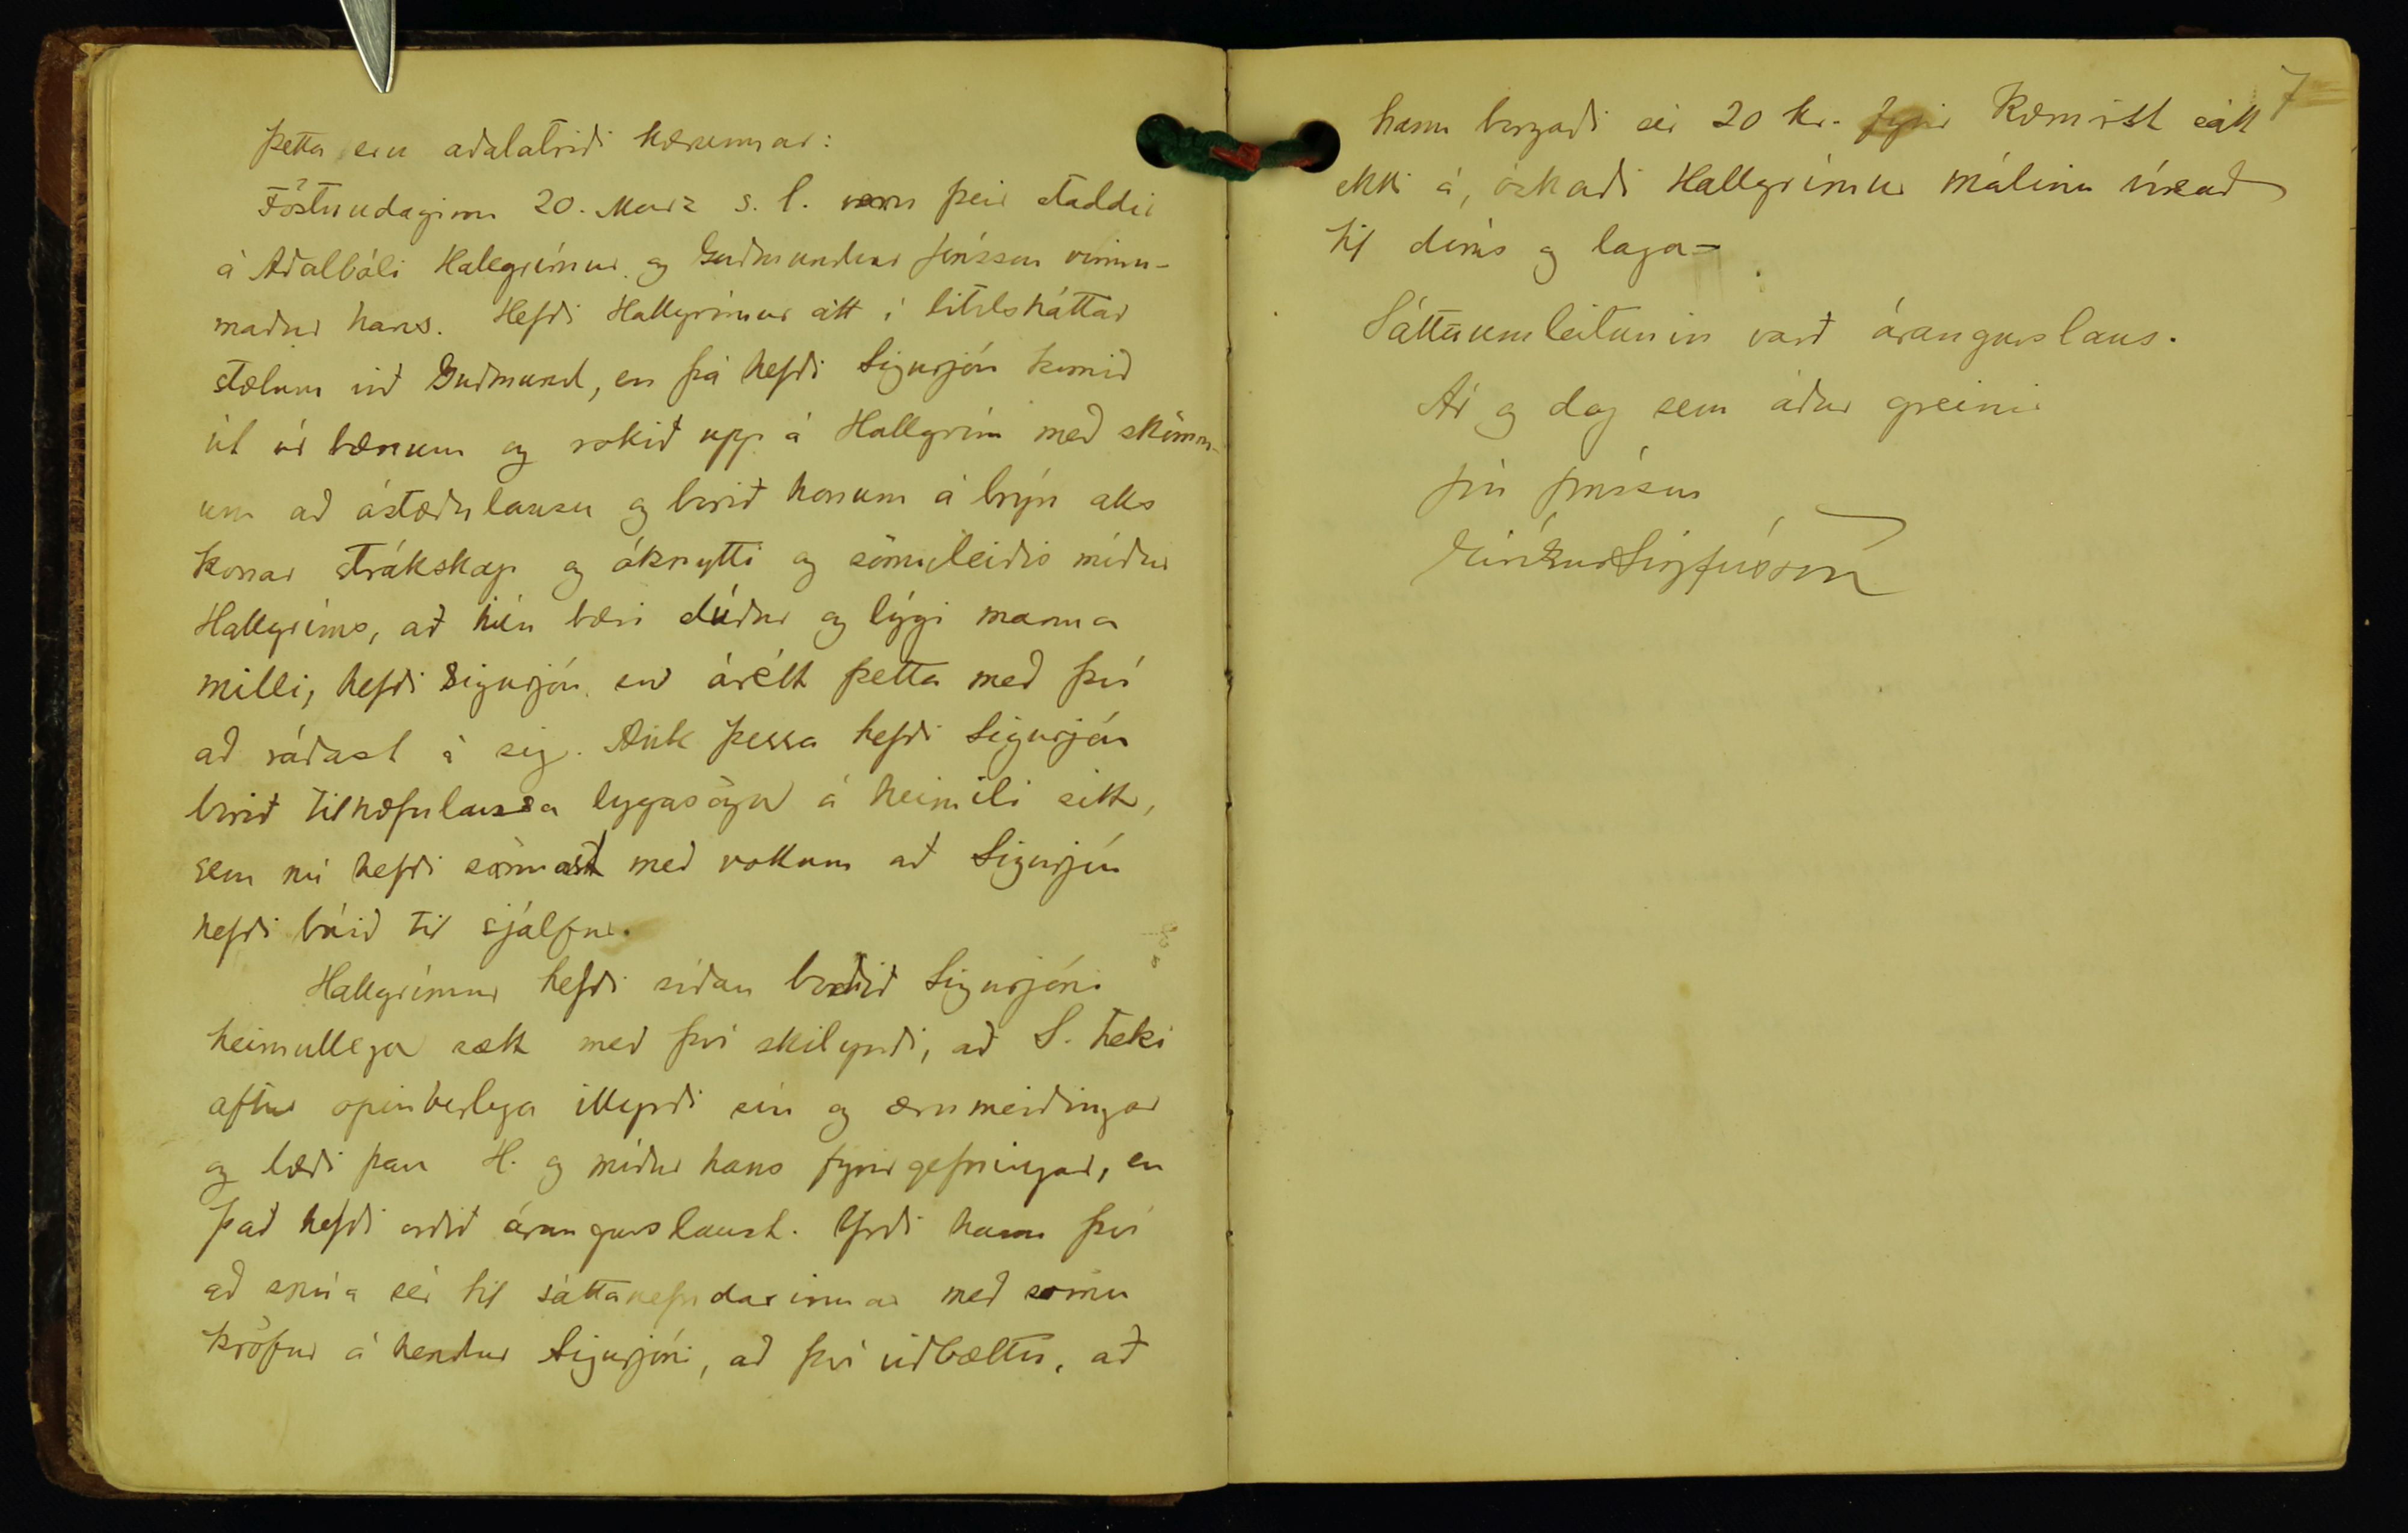 Þetta eru aðalatriði kærunnar:
Föstudaginn 20. Marz s. l. voru þeir staddir
á Aðalbóli Hallgrímur og Guðmundur Jónsson vinnu-
maður hans. Hefði Hallgrímur átt í lítilsháttar
stælum við Guðmund, en þá hefði Sigurjón komið
út úr bænum og rokið upp á Hallgrím með skömm-
um að ástæðulausu og borið honum á brýn alls
konar strákskap og óknytti og sömuleiðis móður
Hallgríms, að hún bæri slúður og lýgi manna
milli, hefði Sigurjón svo árétt þetta með því
að ráðast á sig. Auk þessa hefði Sigurjón
borið tilhæfulausa lygasögu á heimili sitt,
sem nú hefði sannast með vottum að Sigurjón
hefði búið til sjálfur.
Hallgrímur hefði síðan boðið Sigurjóni
heimullega sætt með því skilyrði, að S. taki
aftur opinberlega illyrði sín og ærumeiðingar
og bæði þau H. og móður hans fyrirgefningar, en
það hefði orðið árangurslaust. Yrði hann því
að snúa sér til sáttanefndarinnar með sömu
kröfur á hendur Sigurjóni, að því viðbættu, að
7
hann borgaði sér 20 kr. fyrir Kæmist sátt
ekki á, óskaði Hallgrímur málinu vísað
til dóms og laga-
Sáttaumleitunin varð árangurslaus.
Ár og dag sem áður greinir
Jón Jónsson
Eiríkur Sigfússon